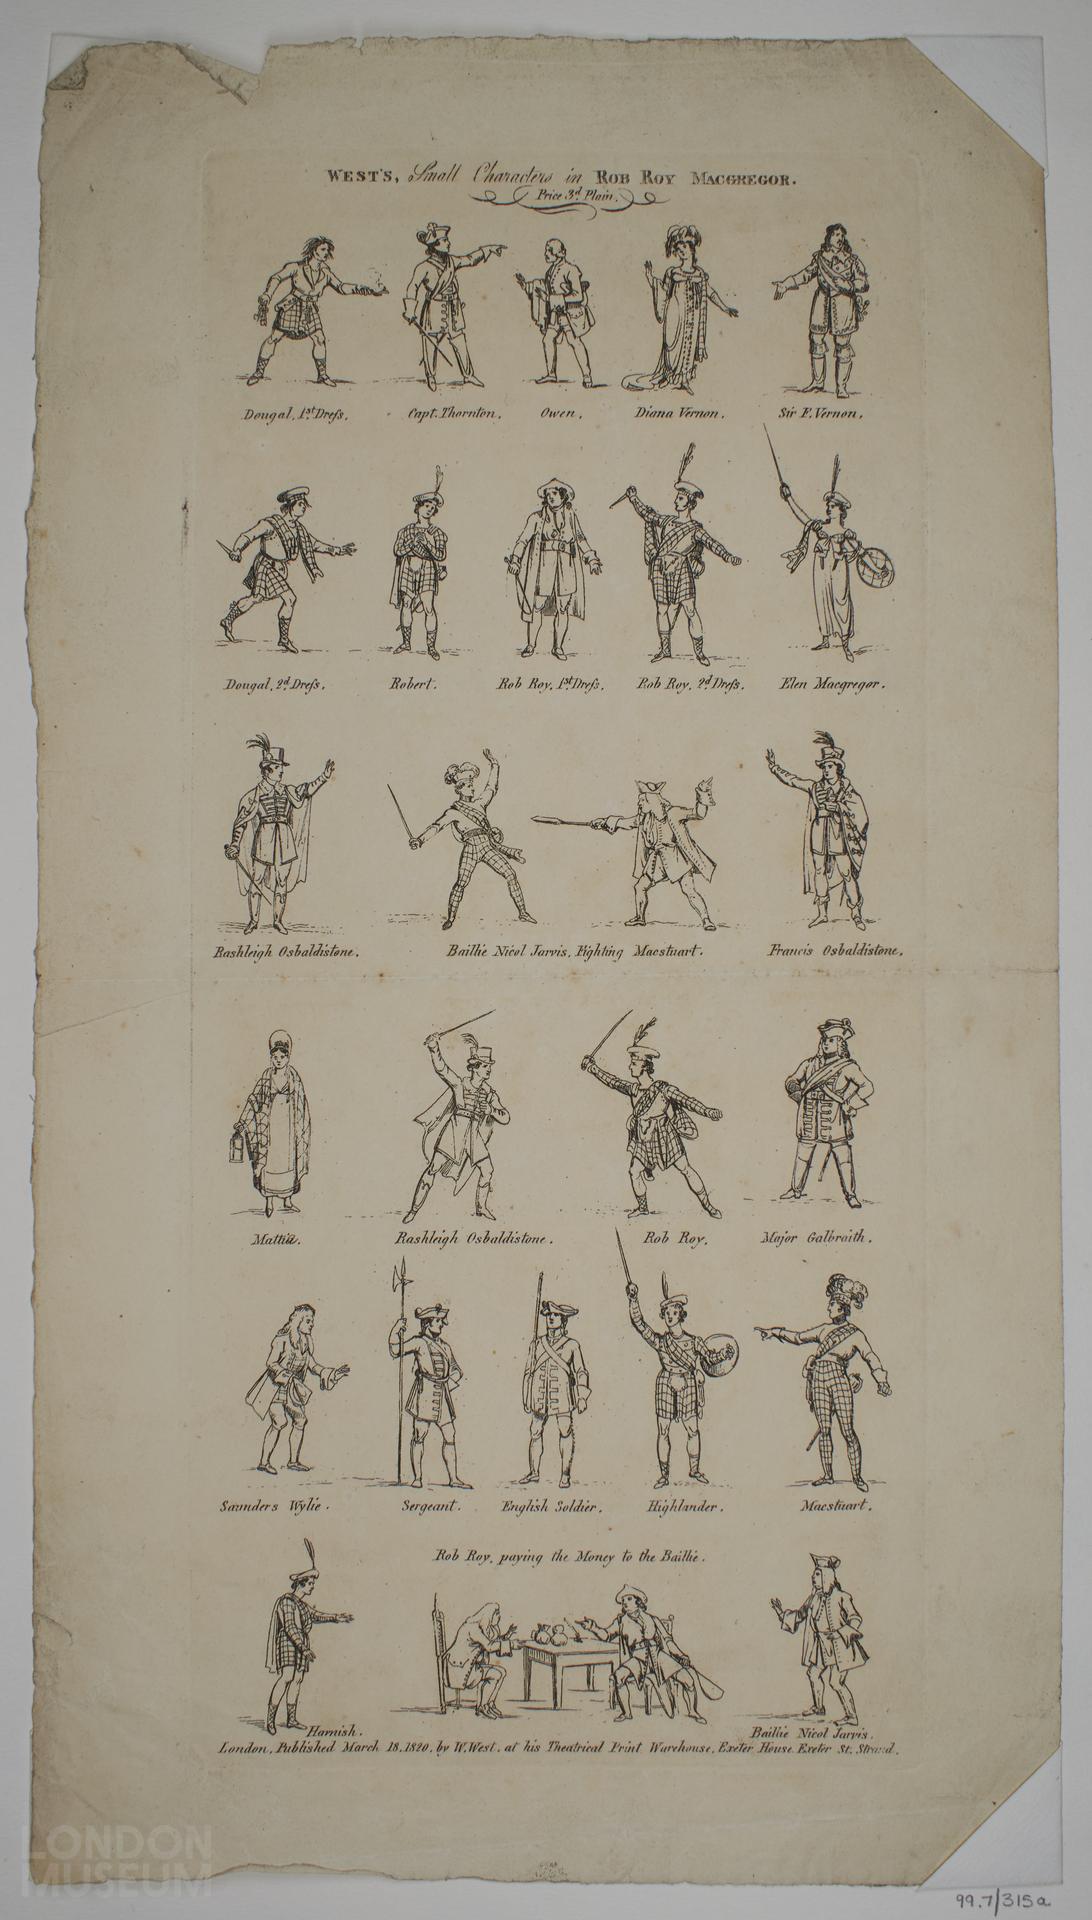 WEST'S, Small Characters in ROB ROY MACGREGOR.
Price 3d. Plain.
Dougal, 1st Dreſs.
Capt. Thornton.
Owen.
Diana Vernon.
Sir F. Vernon.
Dougal, 2d Dreſs.
Robert.
Rob Roy, 1st Dreſs.
Rob Roy, 2d Dreſs.
Elen Macgregor.
Rashleigh Osbaldistone.
Baillie Nicol Jarvis, Fighting Macstuart.
Francis Osbaldistone.
Mattie.
Rashleigh Osbaldistone.
Rob Roy.
Major Galbraith.
Saunders Wylie.
Sergeant.
English Soldier.
Highlander.
Macstuart.
Rob Roy, paying the Money to the Baillie.
Hamish.
Baillie Nicol Jarvis.
London, Published March 18, 1820, by W. West, at his Theatrical Print Warehouse, Exeter House Exeter St. Strand.
LONDON
MUSEUM
99.7/315a